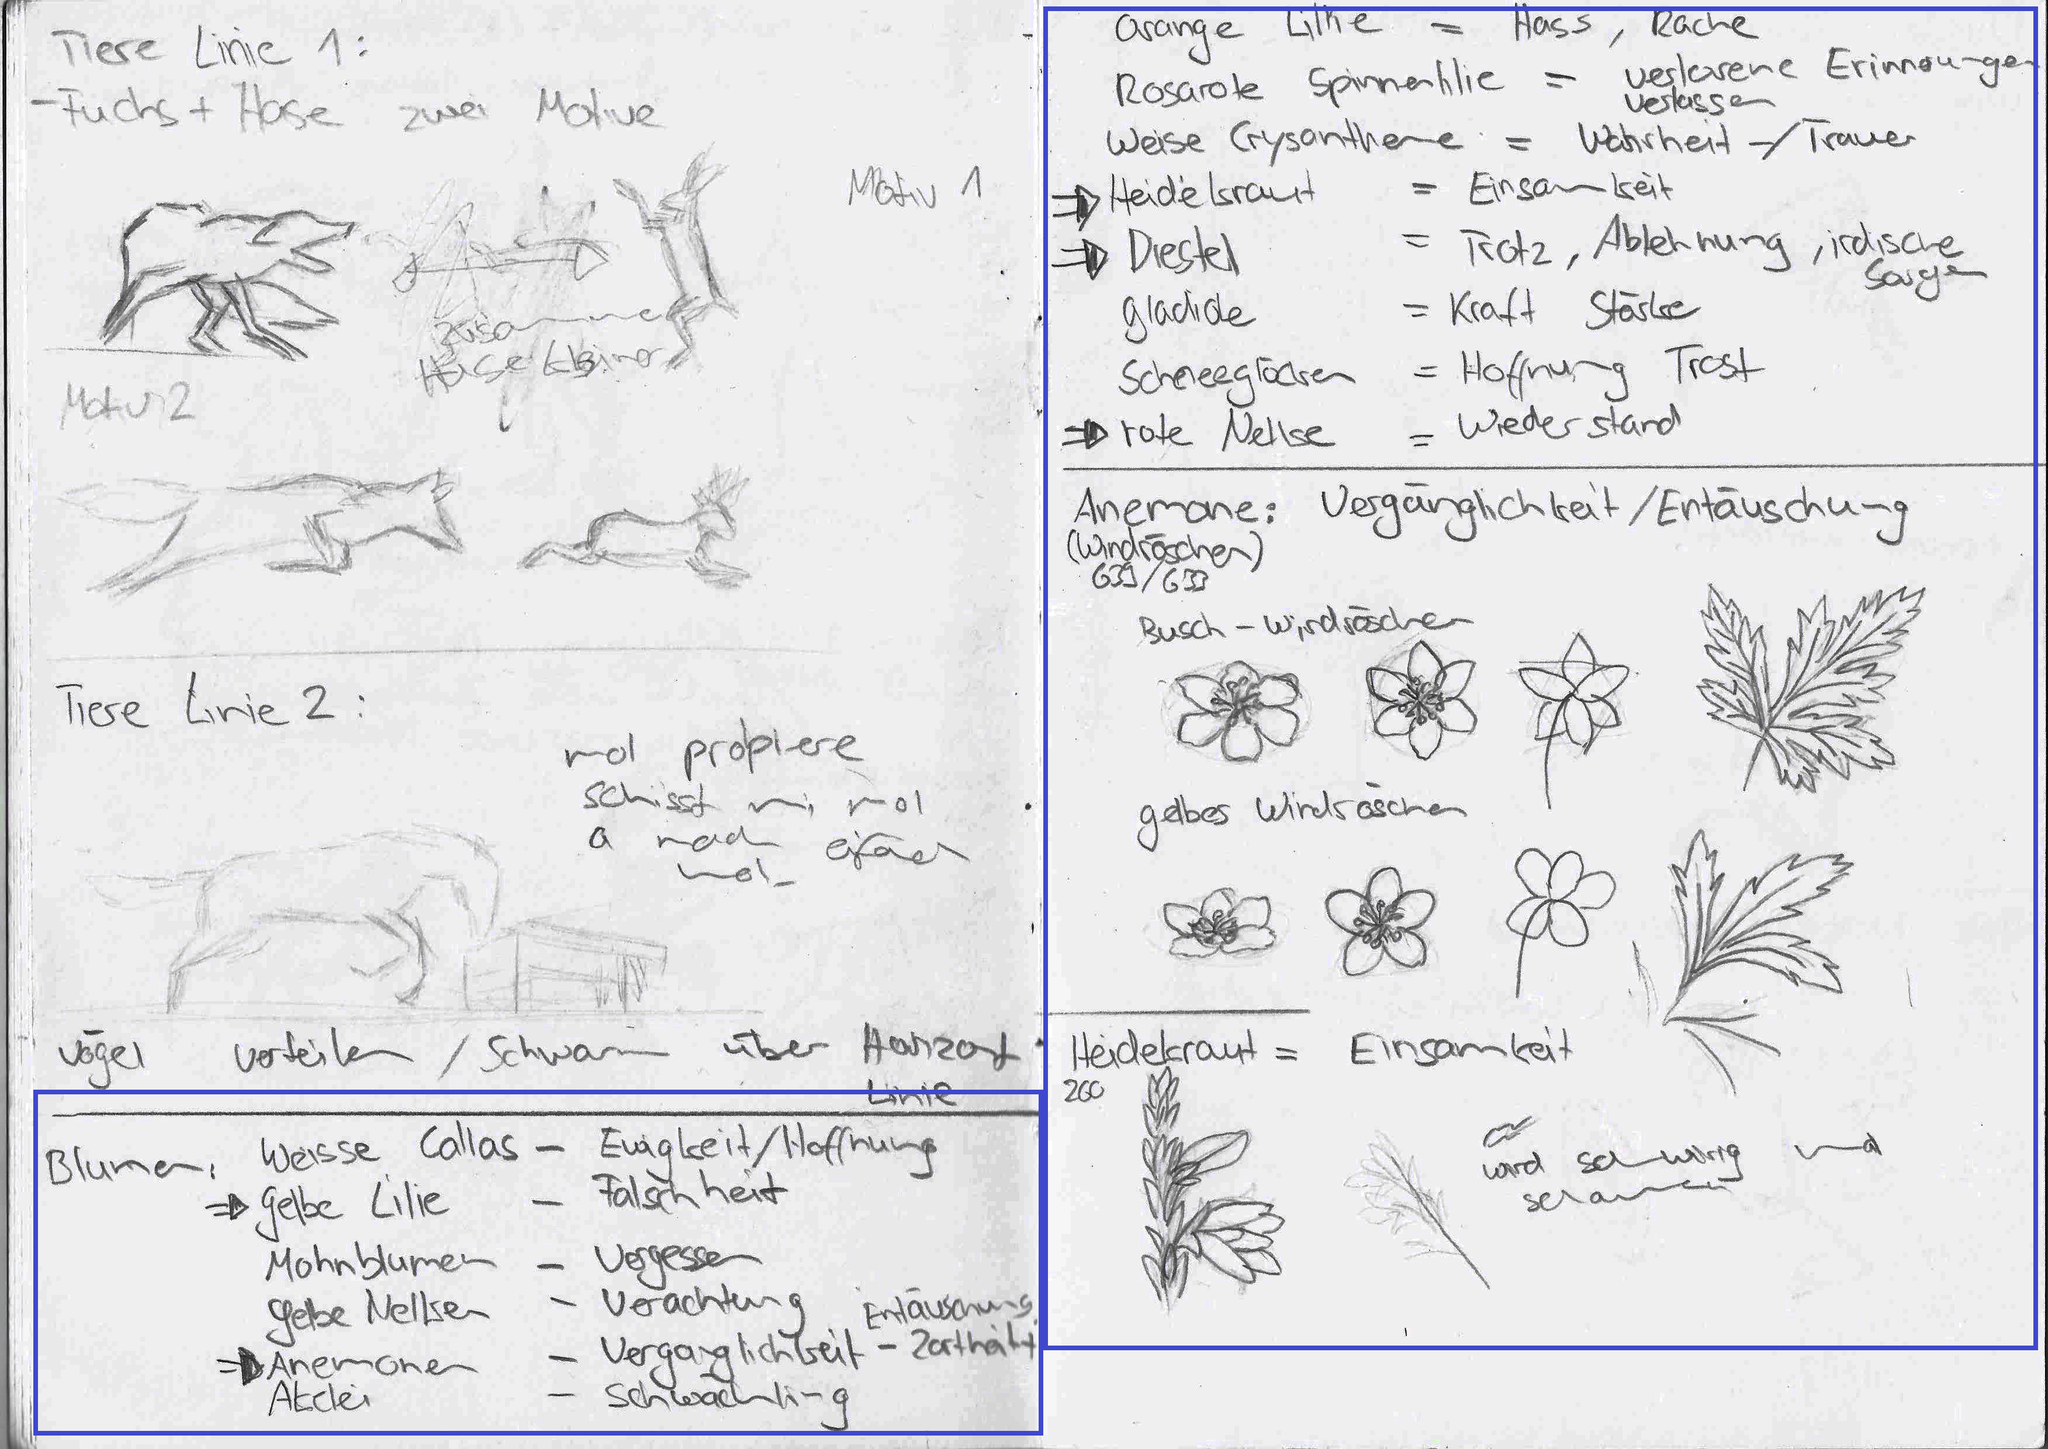 Tiere Linie 1:
- Fuchs + Hase zwei Motive
Motiv 1
zusamme
Hase kleiner
Motiv 2
Tiere Linie 2:
mol probiere
mol
a nach eifach
mol
Vögel verteilen / Schwarm über Horizont
Linie
Blumen: Weisse Callas – Ewigkeit/Hoffnung
⇒ gelbe Lilie – Falschheit
Mohnblumen – Vergessen
gelbe Nelken – Verachtung
Entäuschung
⇒ Anemonen – Vergänglichkeit – Zartheit
Aklei – Schwächling
Orange Lilie = Hass, Rache
Rosarote Spinnenlilie = verlorene Erinnerungen
verlassen
Weise Crysantheme = Wahrheit –/Trauer
⇒ Heidekraut = Einsamkeit
⇒ Diestel = Trotz, Ablehnung, irdische
Sorgen
gladiole = Kraft Stärke
Schneeglöcken = Hoffnung Trost
⇒ rote Nelke = Wiederstand
Anemone: Vergänglichkeit/Entäuschung
(Windröschen)
Busch-Windröschen
gelbes Windröschen
Heidekraut = Einsamkeit
260
wird schwirig mal